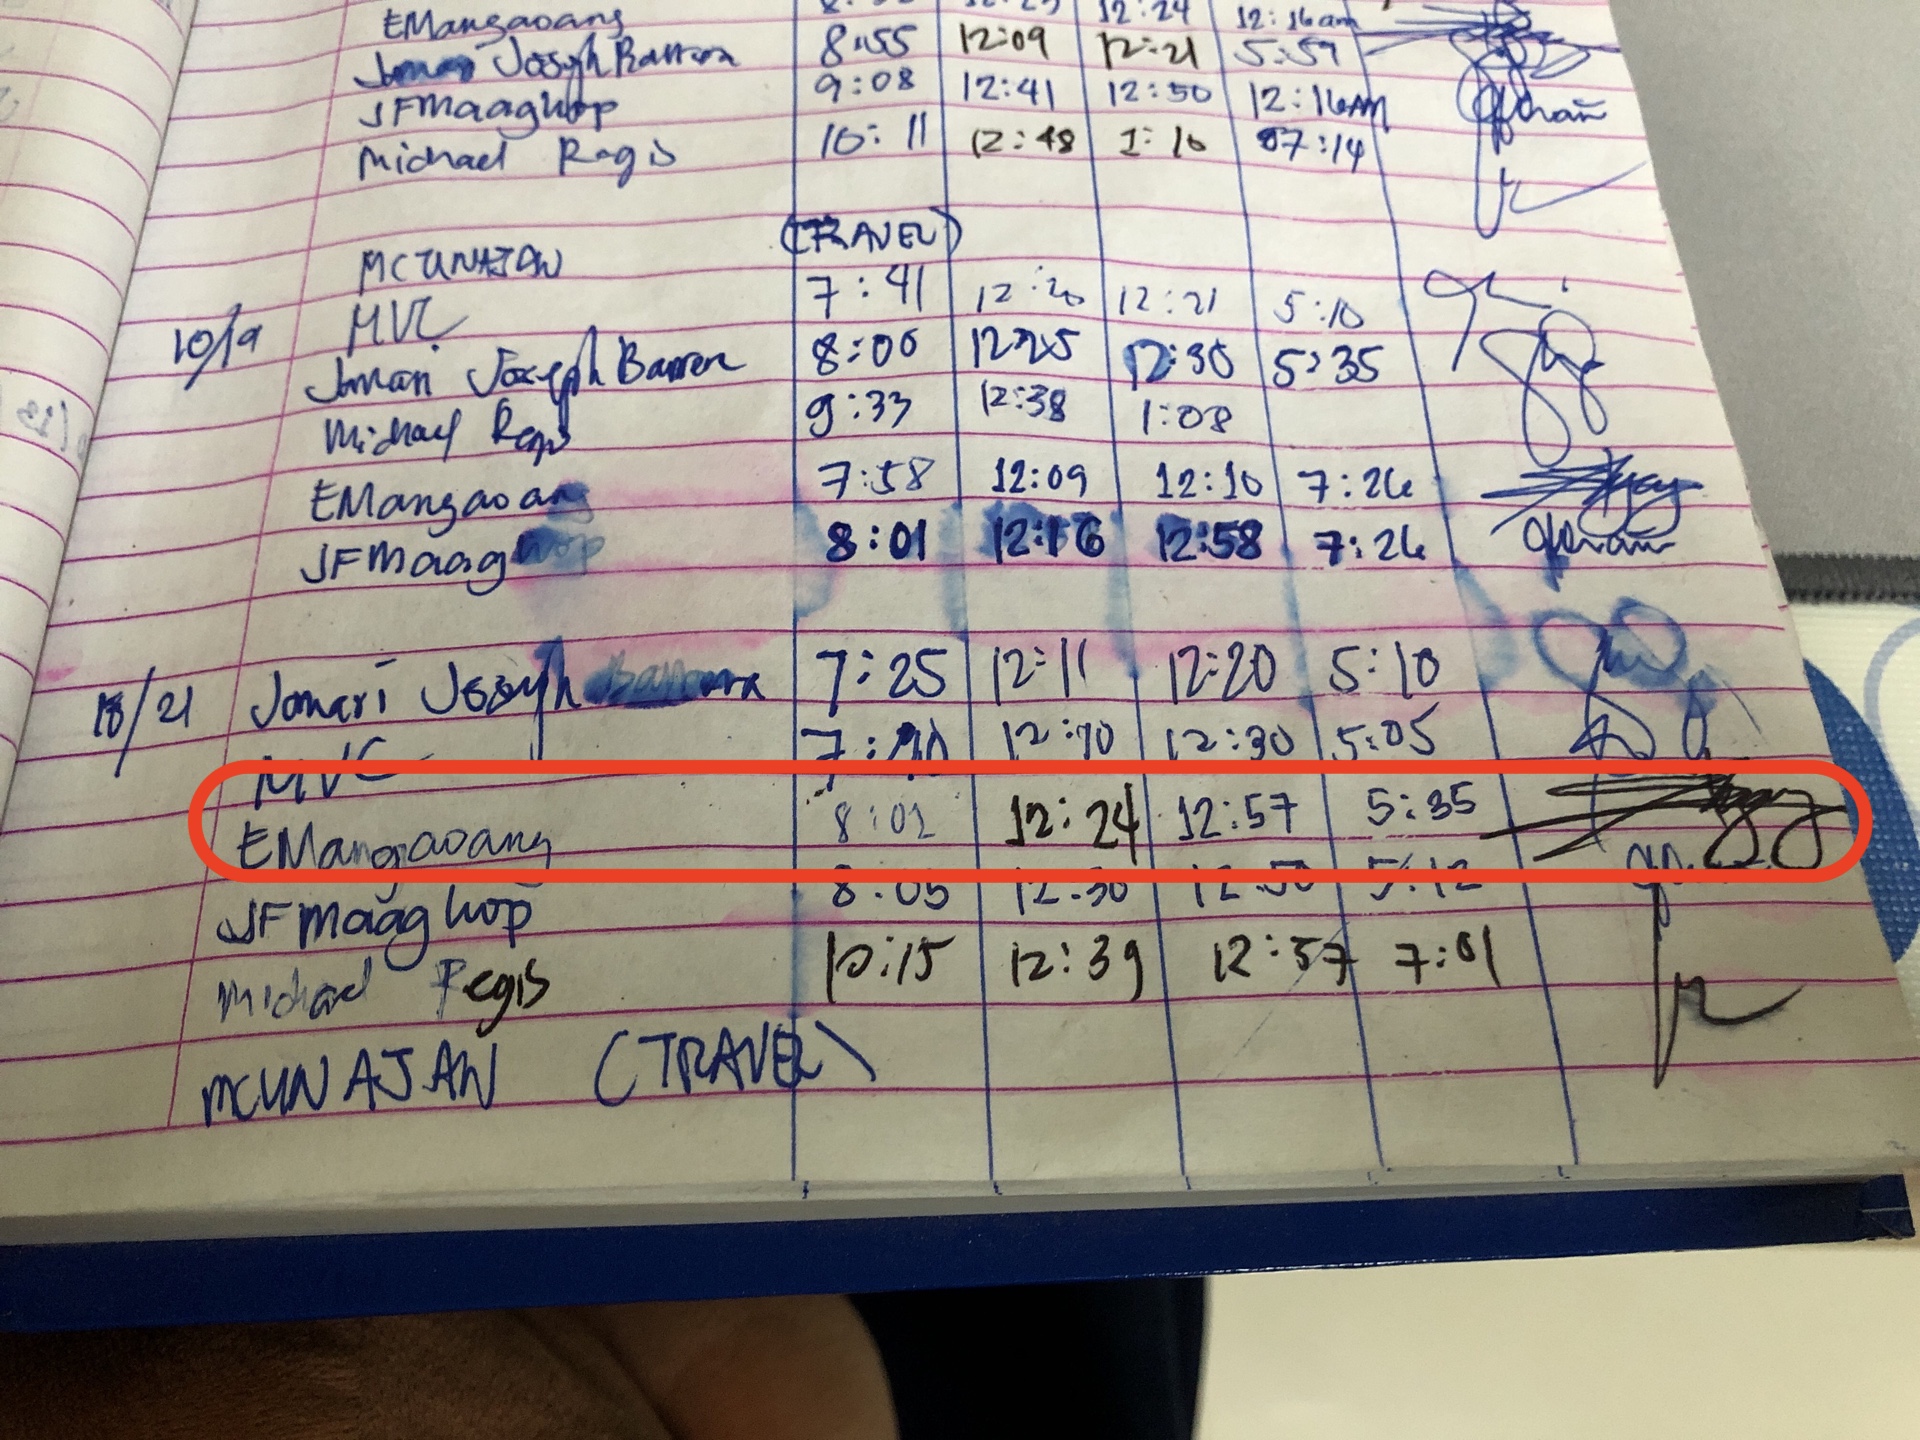 EMangaoang 12:24 12:16am
Jomari Joseph Barrera 8:55 12:09 12:21 5:59
JFMaaghop 9:08 12:41 12:50 12:16AM
Michael Regis 10:11 12:48 1:10 07:14
MCUNAJAN (TRAVEL)
10/9 MVC 7:41 12:20 12:21 5:10
Jomari Joseph Barrera 8:00 12:25 12:30 5:35
Michael Regis 9:33 12:38 1:08
EMangaoang 7:58 12:09 12:10 7:26
JFMaaghop 8:01 12:16 12:58 7:26
/21 Jomari Joseph Barrera 7:25 12:11 12:20 5:10
MVC 12:10 12:30 5:05
EMangaoang 8:02 12:24 12:57 5:35
JFMaaghop 8:05 12:30 12:50 5:12
Michael Regis 10:15 12:39 12:57 7:01
MCUNAJAN (TRAVEL)